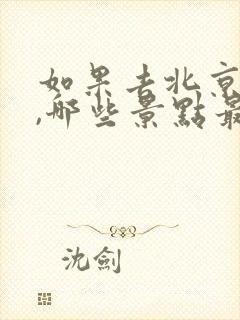 如果去北京
,哪些景點最
沈劍